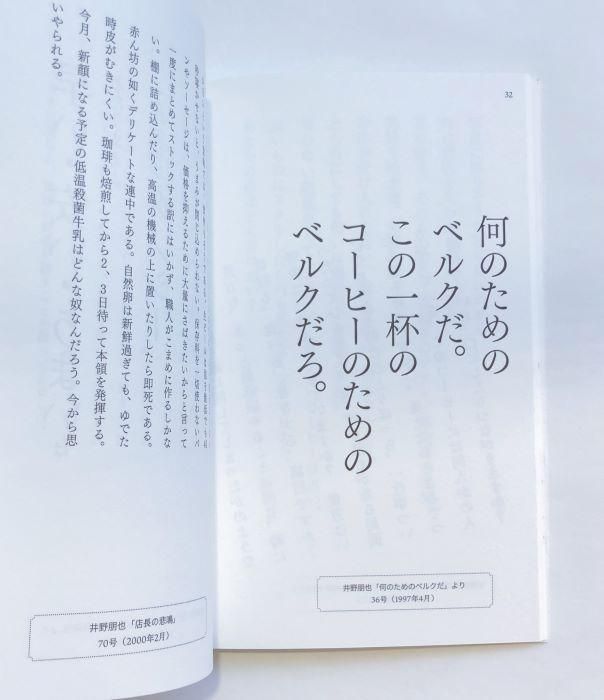 32
何のための
ベルクだ。
この一杯の
コーヒーのための
ベルクだろ。
井野朋也「何のためのベルクだ」より
36号（1997年4月）
ンやソーセージは、価格を抑えるために大量にさばきたいからと言って
一度にまとめてストックする訳にはいかず、職人がこまめに作るしかな
い。棚に詰め込んだり、高温の機械の上に置いたりしたら即死である。
赤ん坊の如くデリケートな連中である。自然卵は新鮮過ぎても、ゆでた
時皮がむきにくい。珈琲も焙煎してから2、3日待って本領を発揮する。
今月、新顔になる予定の低温殺菌牛乳はどんな奴なんだろう。今から思
いやられる。
井野朋也「店長の悲鳴」
70号（2000年2月）